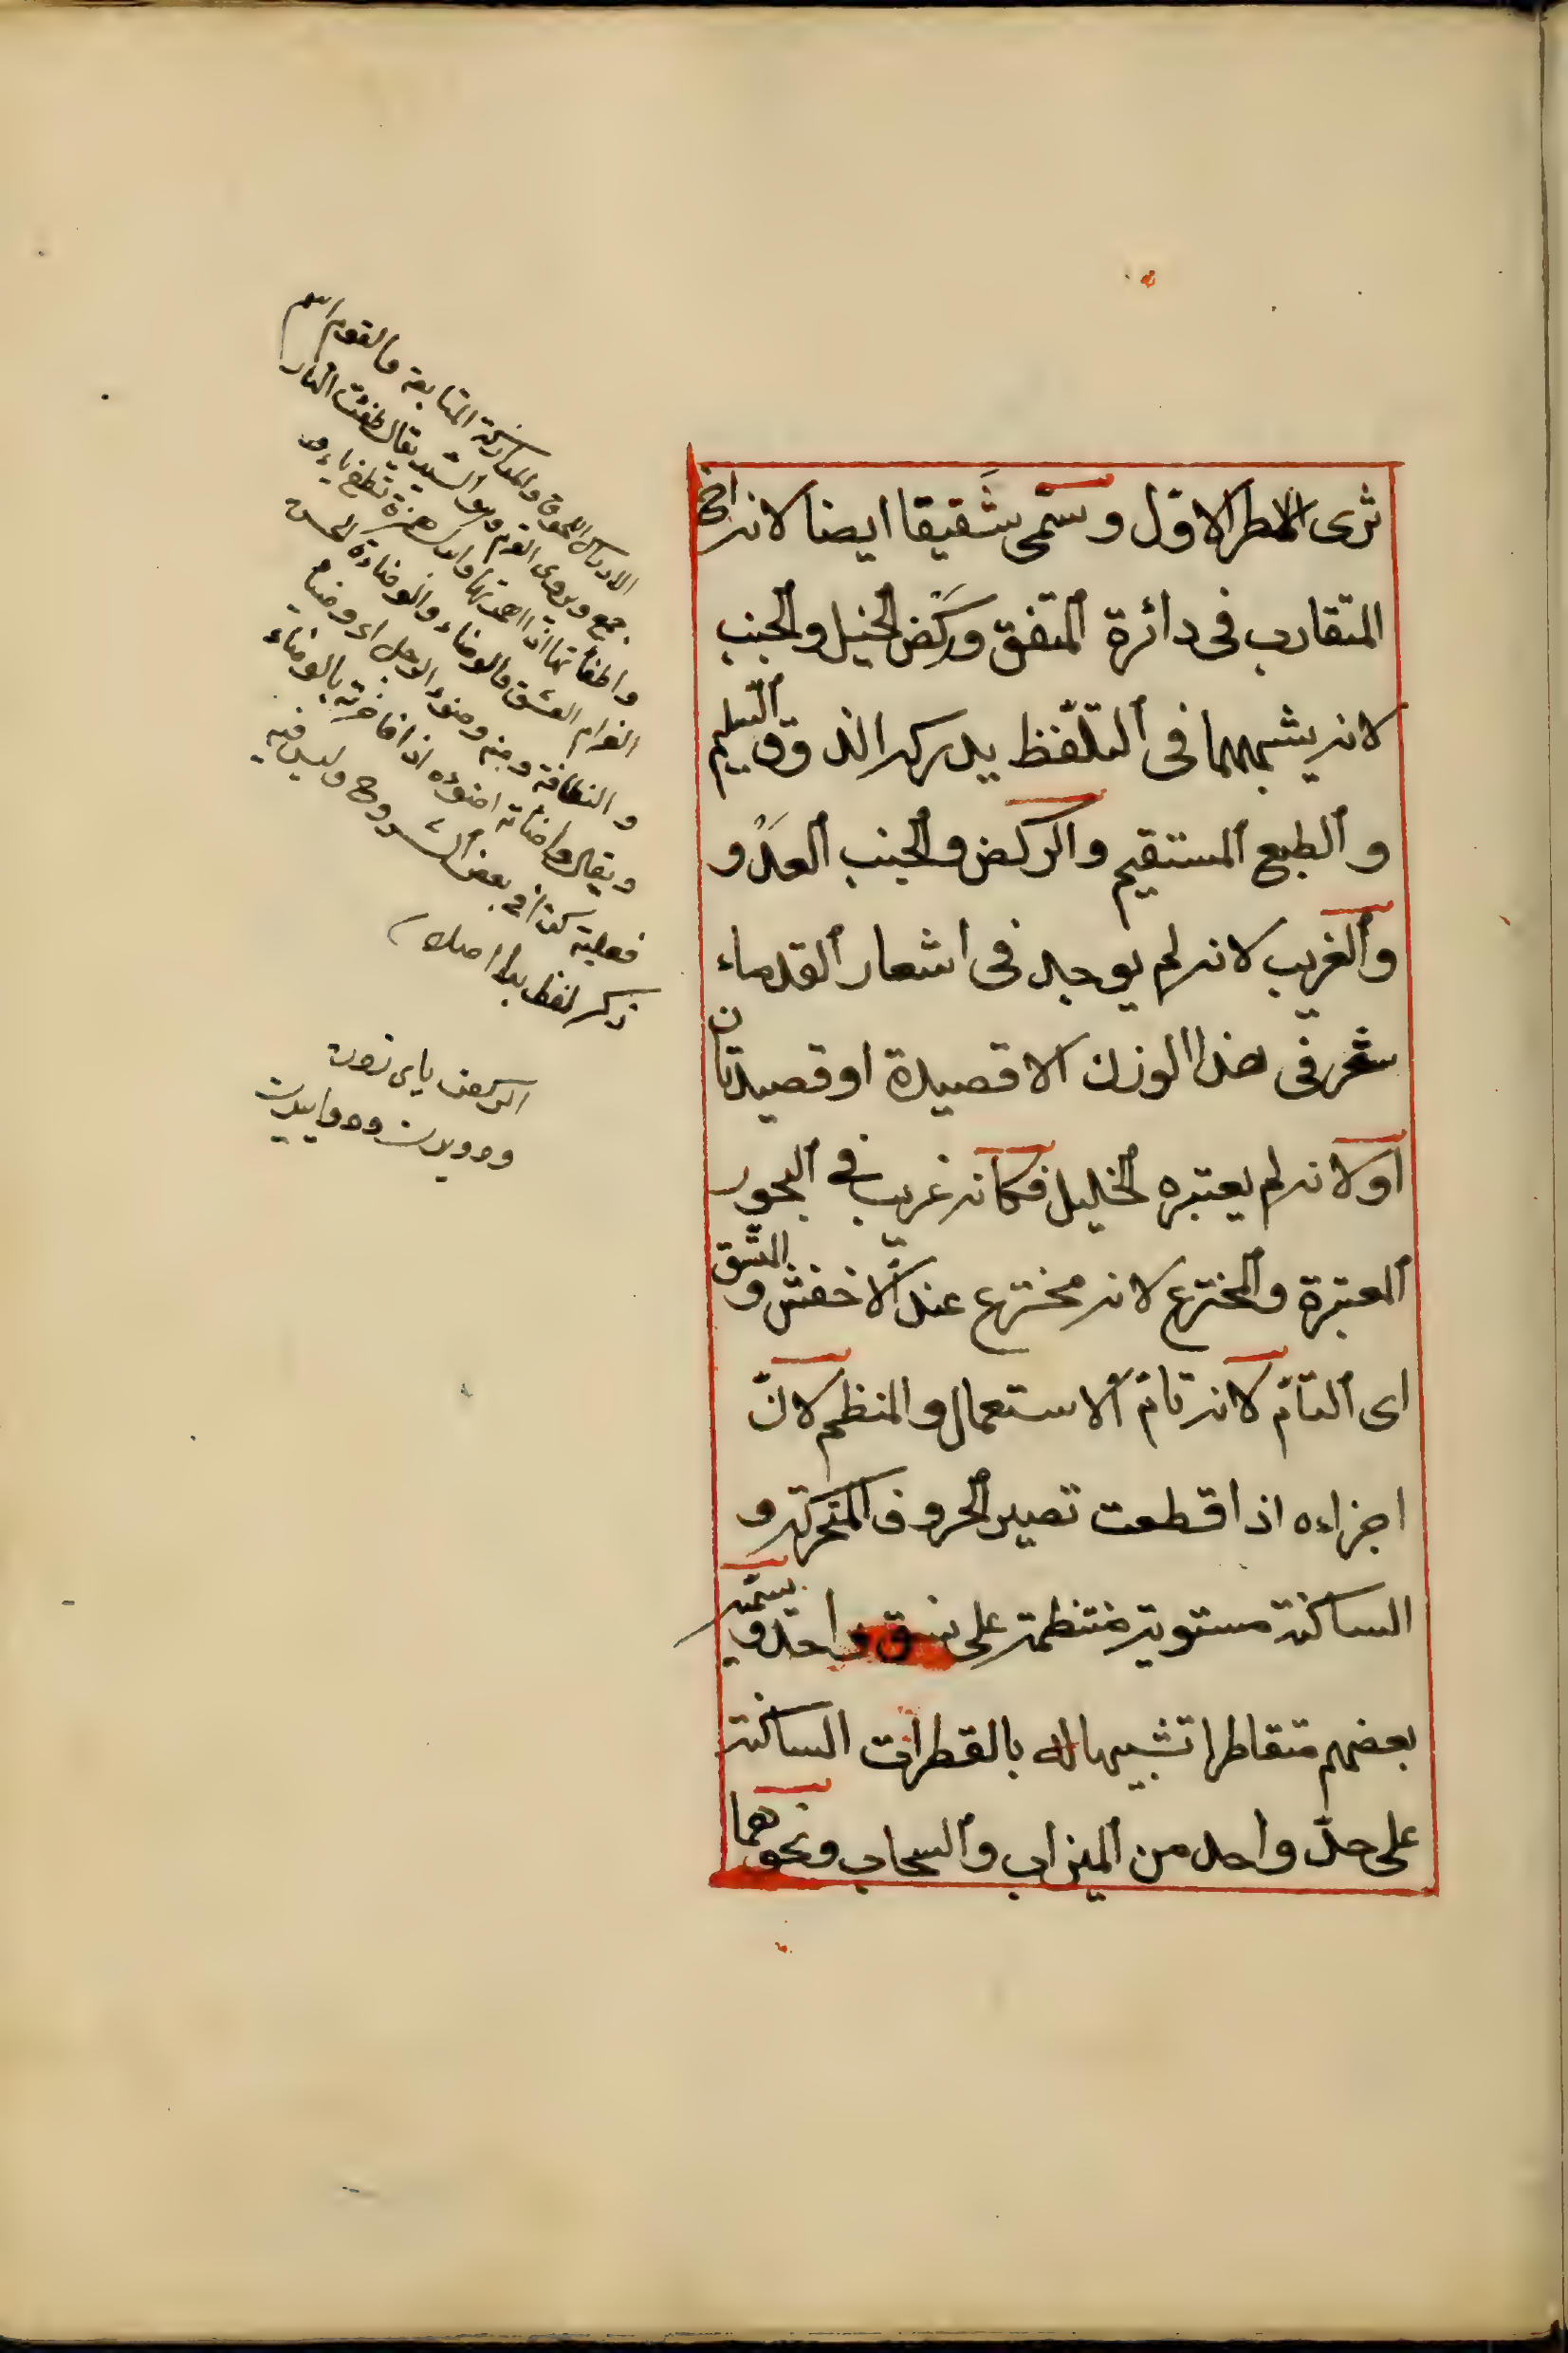 ثرى المطر الاول وسمّى شَقيقا ايضا لانه اخ
المتقارب فى دائرة المتفق وركَض الخيل والخبب
لانه يشبههما فى التلفّظ يدركه الذوق السليم
و الطبع المستقيم والركض والخبب العدْو
والغريب لانه لم يوجد فى اشعار القدماء
شعر فى هذا الوزن الا قصيدة او قصيدتان
او لانه لم يعتبره الخليل فكانه غريب فى البحور
المعتبرة والمخترع لانه مخترع عند الاخفش والمتّسق
اى التامّ لانه تامّ الاستعمال والمنظم لانّ
اجزاءه اذا قطعت تصير الحروف المتحركة و
الساكنة مستوية منتظمة على نسق واحد ويسمّيه
بعضهم متقاطرا تشبيها له بالقطرات الساكنة
على حدّ واحد من الميزاب والسحاب ونحوهما
الادراك اللحوق والمداركة المتابعة والقوم اسم
جمع ويروى القرم وهو السيد يقال طفئت النار
واطفأتها اذا اخمدتها
الغرام العشق والوضاء والوضاءة الحسن
و النظافة ومنه وضوء الرجل اى وضيئا
ويقال واضأته اضوءه اذا فاخرته بالوضاءة
فعليه كذا فى بعض الشروح وليس فيه
ذكر لفظ